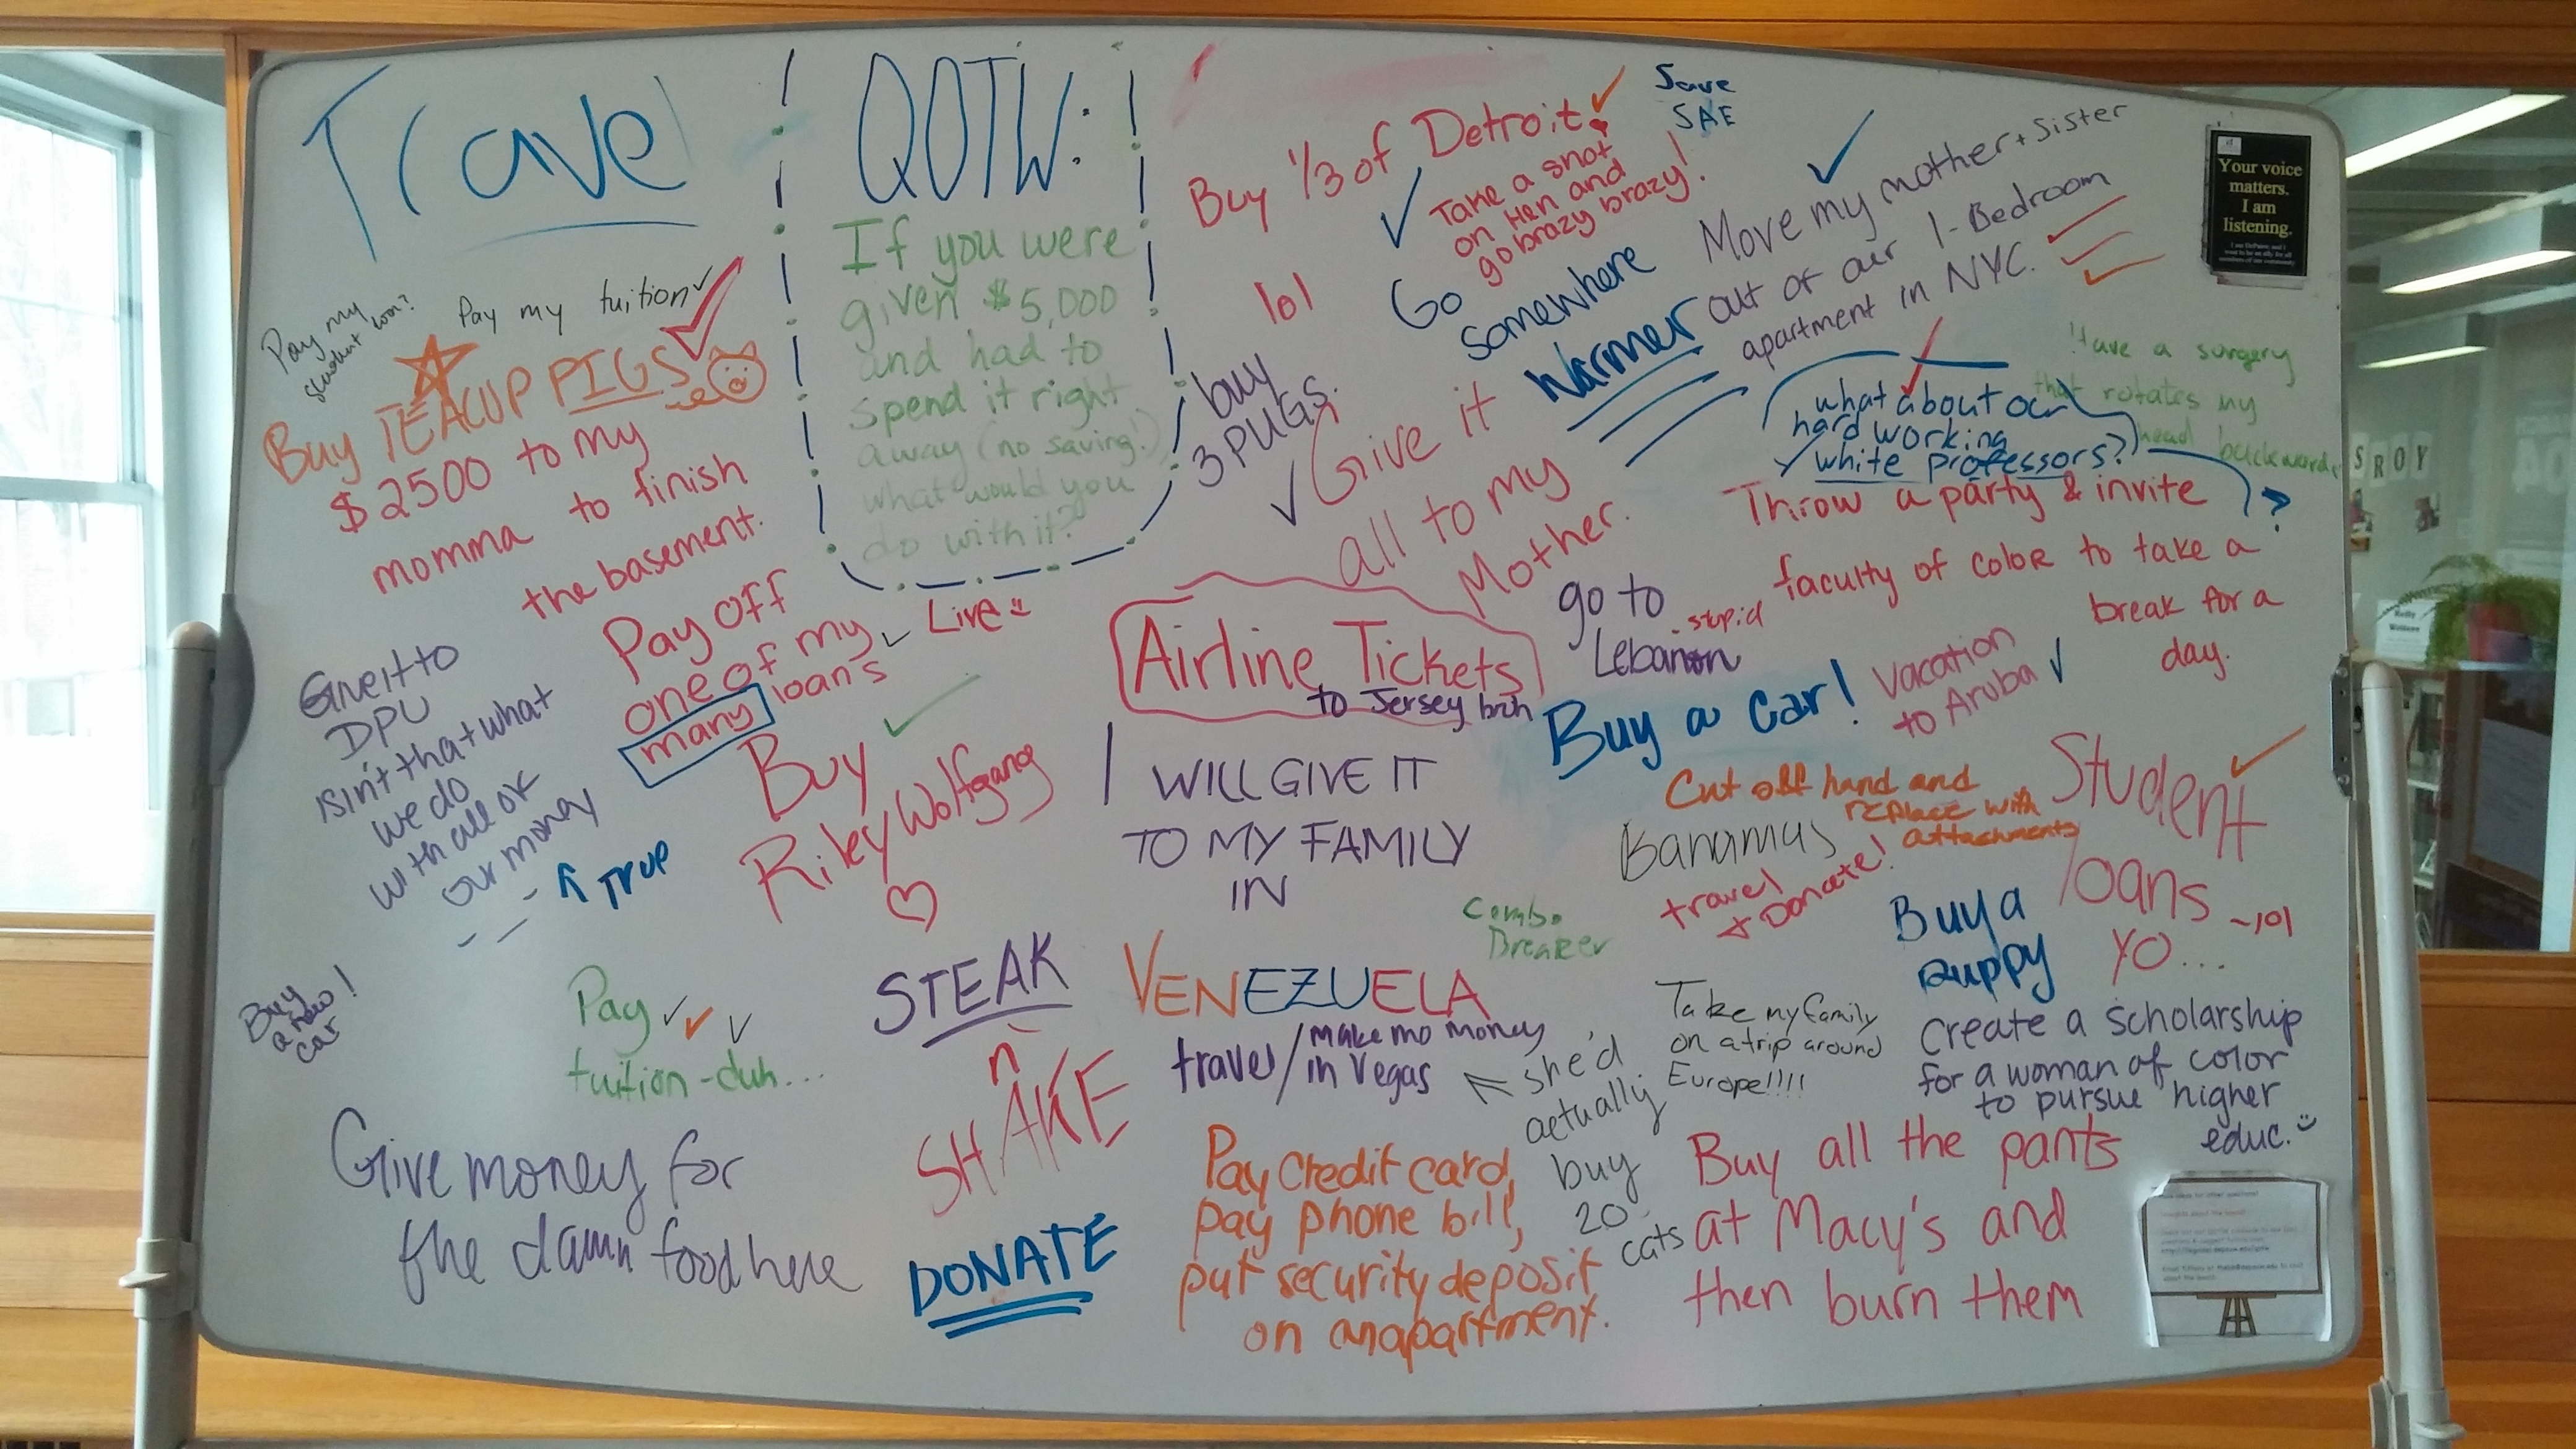 Travel
QOTW:
If you were
given $5,000
and had to
spend it right
away (no saving!)
what would you
do with it?
Buy 1/3 of Detroit!
Save
SAE
Take a shot
on Hen and
go brazy brazy!
lol
Go
somewhere
warmer
Move my mother + sister
out of our 1-Bedroom
apartment in NYC.
Your voice
matters.
I am
listening.
Pay my
student loan?
Pay my tuition
Buy TEACUP PIGS
$2500 to my
momma to finish
the basement.
buy
3 PUGS.
Give it
all to my
Mother.
Have a surgery
that rotates my
head backwards
what about our
hard working
white professors?
Throw a party & invite
faculty of color to take a
break for a
day.
?
SROY
Pay off
one of my
many loans
Live
Give it to
DPU
isn't that what
we do
with all of
our money
TRUE
Buy
Riley Wolfgang
Airline Tickets
to Jersey bruh
go to
Lebanon
stupid
Buy a car!
Vacation
to Aruba
I WILL GIVE IT
TO MY FAMILY
IN
VENEZUELA
Cut off hand and
replace with
attachments
Bahamas
travel
+ Donate!
Student
loans
YO...
~lol
Combo
Breaker
Buy a
puppy
Buy
a new
car!
Pay
tuition - duh...
STEAK
n
SHAKE
travel/make mo money
in Vegas
she'd
actually
buy
20
cats
Take my family
on a trip around
Europe!!!!
Create a scholarship
for a woman of color
to pursue higher
educ.
Give money for
the damn food here
DONATE
Pay Credit card,
pay phone bill,
put security deposit
on an apartment.
Buy all the pants
at Macy's and
then burn them